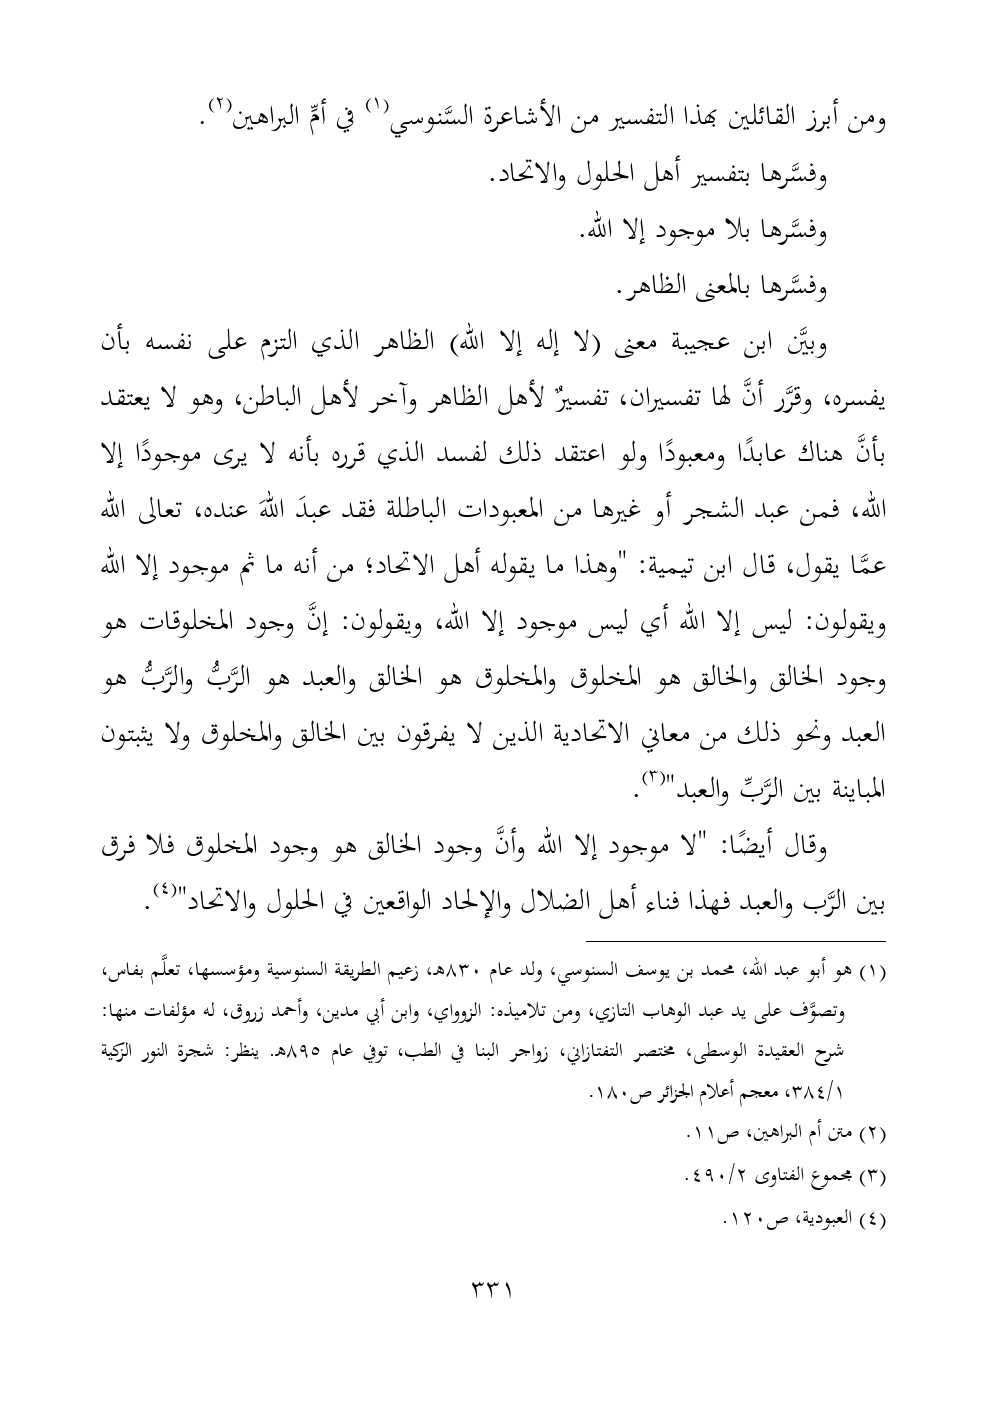 ومن أبرز القائلين بهذا التفسير من الأشاعرة السَّنوسي(١) في أمِّ البراهين(٢).
وفسَّرها بتفسير أهل الحلول والاتحاد.
وفسَّرها بلا موجود إلا الله.
وفسَّرها بالمعنى الظاهر.
وبيَّن ابن عجيبة معنى (لا إله إلا الله) الظاهر الذي التزم على نفسه بأن
يفسره، وقرَّر أنَّ لها تفسيران، تفسيرٌ لأهل الظاهر وآخر لأهل الباطن، وهو لا يعتقد
بأنَّ هناك عابدًا ومعبودًا ولو اعتقد ذلك لفسد الذي قرره بأنه لا يرى موجودًا إلا
الله، فمن عبد الشجر أو غيرها من المعبودات الباطلة فقد عبدَ اللهَ عنده، تعالى الله
عمَّا يقول، قال ابن تيمية: "وهذا ما يقوله أهل الاتحاد؛ من أنه ما ثم موجود إلا الله
ويقولون: ليس إلا الله أي ليس موجود إلا الله، ويقولون: إنَّ وجود المخلوقات هو
وجود الخالق والخالق هو المخلوق والمخلوق هو الخالق والعبد هو الرَّبُّ والرَّبُّ هو
العبد ونحو ذلك من معاني الاتحادية الذين لا يفرقون بين الخالق والمخلوق ولا يثبتون
المباينة بين الرَّبِّ والعبد"(٣).
وقال أيضًا: "لا موجود إلا الله وأنَّ وجود الخالق هو وجود المخلوق فلا فرق
بين الرَّب والعبد فهذا فناء أهل الضلال والإلحاد الواقعين في الحلول والاتحاد"(٤).
(١) هو أبو عبد الله، محمد بن يوسف السنوسي، ولد عام ٨٣٠هـ، زعيم الطريقة السنوسية ومؤسسها، تعلَّم بفاس،
وتصوَّف على يد عبد الوهاب التازي، ومن تلاميذه: الزوواي، وابن أبي مدين، وأحمد زروق، له مؤلفات منها:
شرح العقيدة الوسطى، مختصر التفتازاني، زواجر البنا في الطب، توفي عام ٨٩٥هـ. ينظر: شجرة النور الزكية
٣٨٤/١، معجم أعلام الجزائر ص١٨٠.
(٢) متن أم البراهين، ص١١.
(٣) مجموع الفتاوى ٤٩٠/٢.
(٤) العبودية، ص١٢٠.
٣٣١